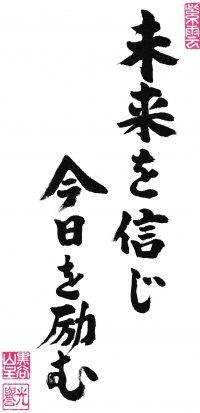 未来を信じ
今日を励む